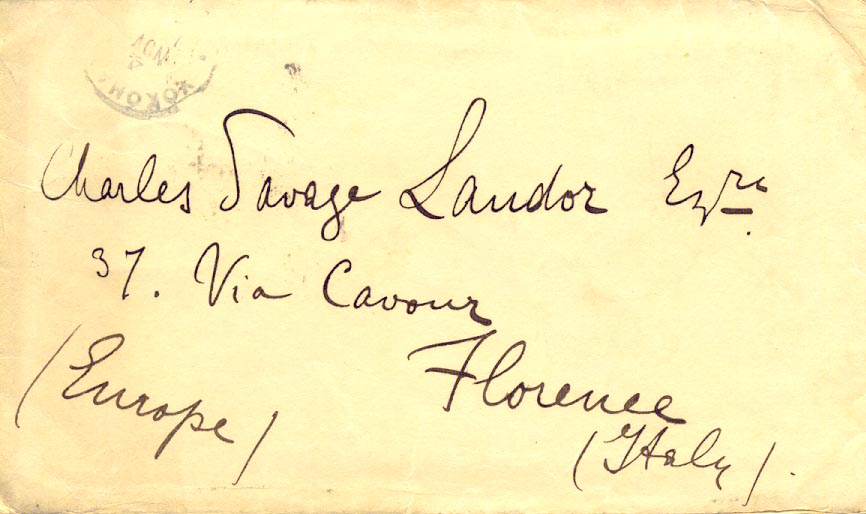 Charles Savage Landor Esqre.
37. Via Cavour
Florence
(Europe)
(Italy).